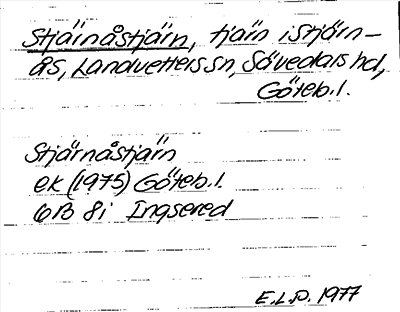 Stjärnåstjärn, tjärn i Stjärn-
ås, Landvetters sn, Sävedals hd,
Göteb. l.
Stjärnåstjärn
ek (1975) Göteb. l.
6B 8i Ingsered
E.L.D. 1977